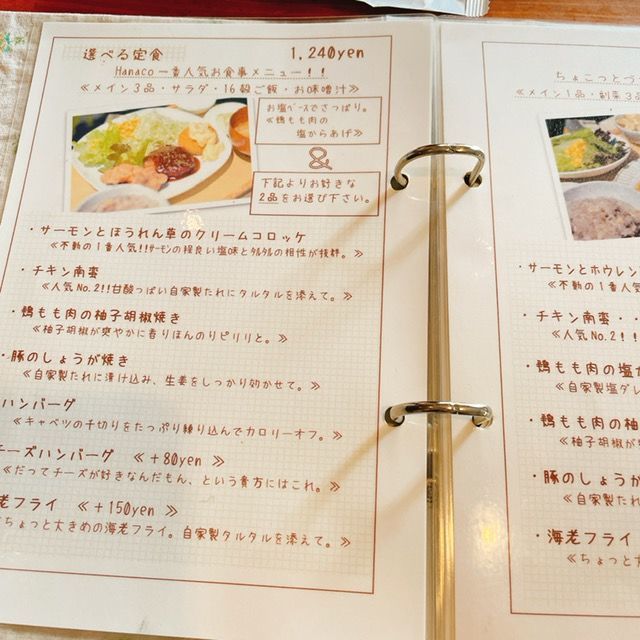 選べる定食 1,240yen
Hanaco一番人気お食事メニュー！！
≪メイン3品・サラダ・16穀ご飯・お味噌汁≫
お塩ベースでさっぱり。
≪鶏もも肉の
塩からあげ≫
&
下記よりお好きな
2品をお選び下さい。
・サーモンとほうれん草のクリームコロッケ
≪不動の1番人気!!サーモンの程良い塩味とタルタルの相性が抜群。≫
・チキン南蛮
≪人気No.2!!甘酸っぱい自家製たれにタルタルを添えて。≫
・鶏もも肉の柚子胡椒焼き
≪柚子胡椒が爽やかに香りほんのりピリリと。≫
・豚のしょうが焼き
≪自家製たれに漬け込み、生姜をしっかり効かせて。≫
ハンバーグ
≪キャベツの千切りをたっぷり練り込んでカロリーオフ。≫
チーズハンバーグ ≪+80yen≫
≪だってチーズが好きなんだもん、という貴方にはこれ。≫
老フライ ≪+150yen≫
ちょっと大きめの海老フライ。自家製タルタルを添えて。≫
ちょこっとづ
≪メイン1品・副菜3品
・サーモンとホウレン
≪不動の1番人
・チキン南蛮・・
≪人気No.2!!
・鶏もも肉の塩か
≪自家製塩ダレ
・鶏もも肉の柚
≪柚子胡椒が爽
・豚のしょうが
≪自家製たれ
・海老フライ
≪ちょっと大